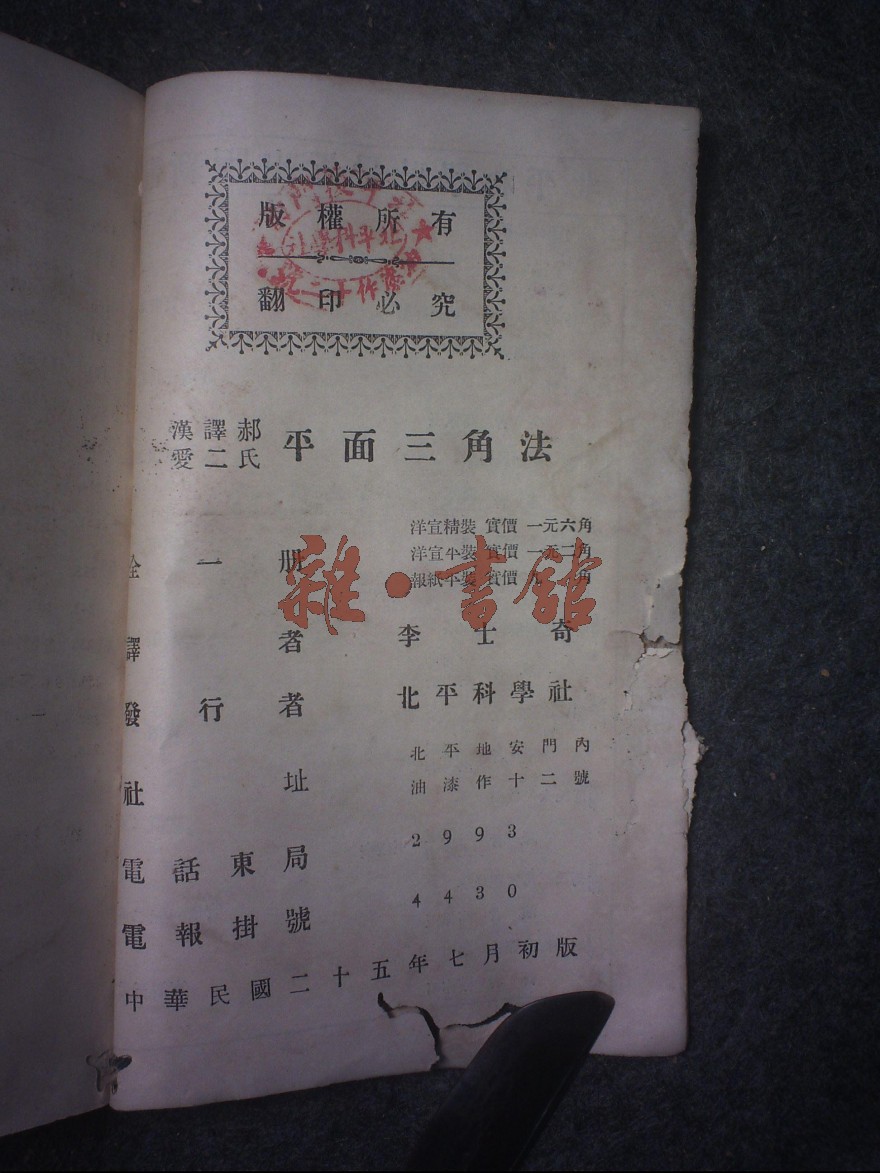 版權所有
翻印必究
漢譯郝
愛二氏
平面三角法
洋宣精裝 實價 一元六角
洋宣平裝 實價 一元二角
報紙平裝 實價 角
全一册
譯者 李士奇
發行者 北平科學社
社址 北平地安門內
油漆作十二號
電話東局 2993
電報掛號 4430
中華民國二十五年七月初版
雜·書館